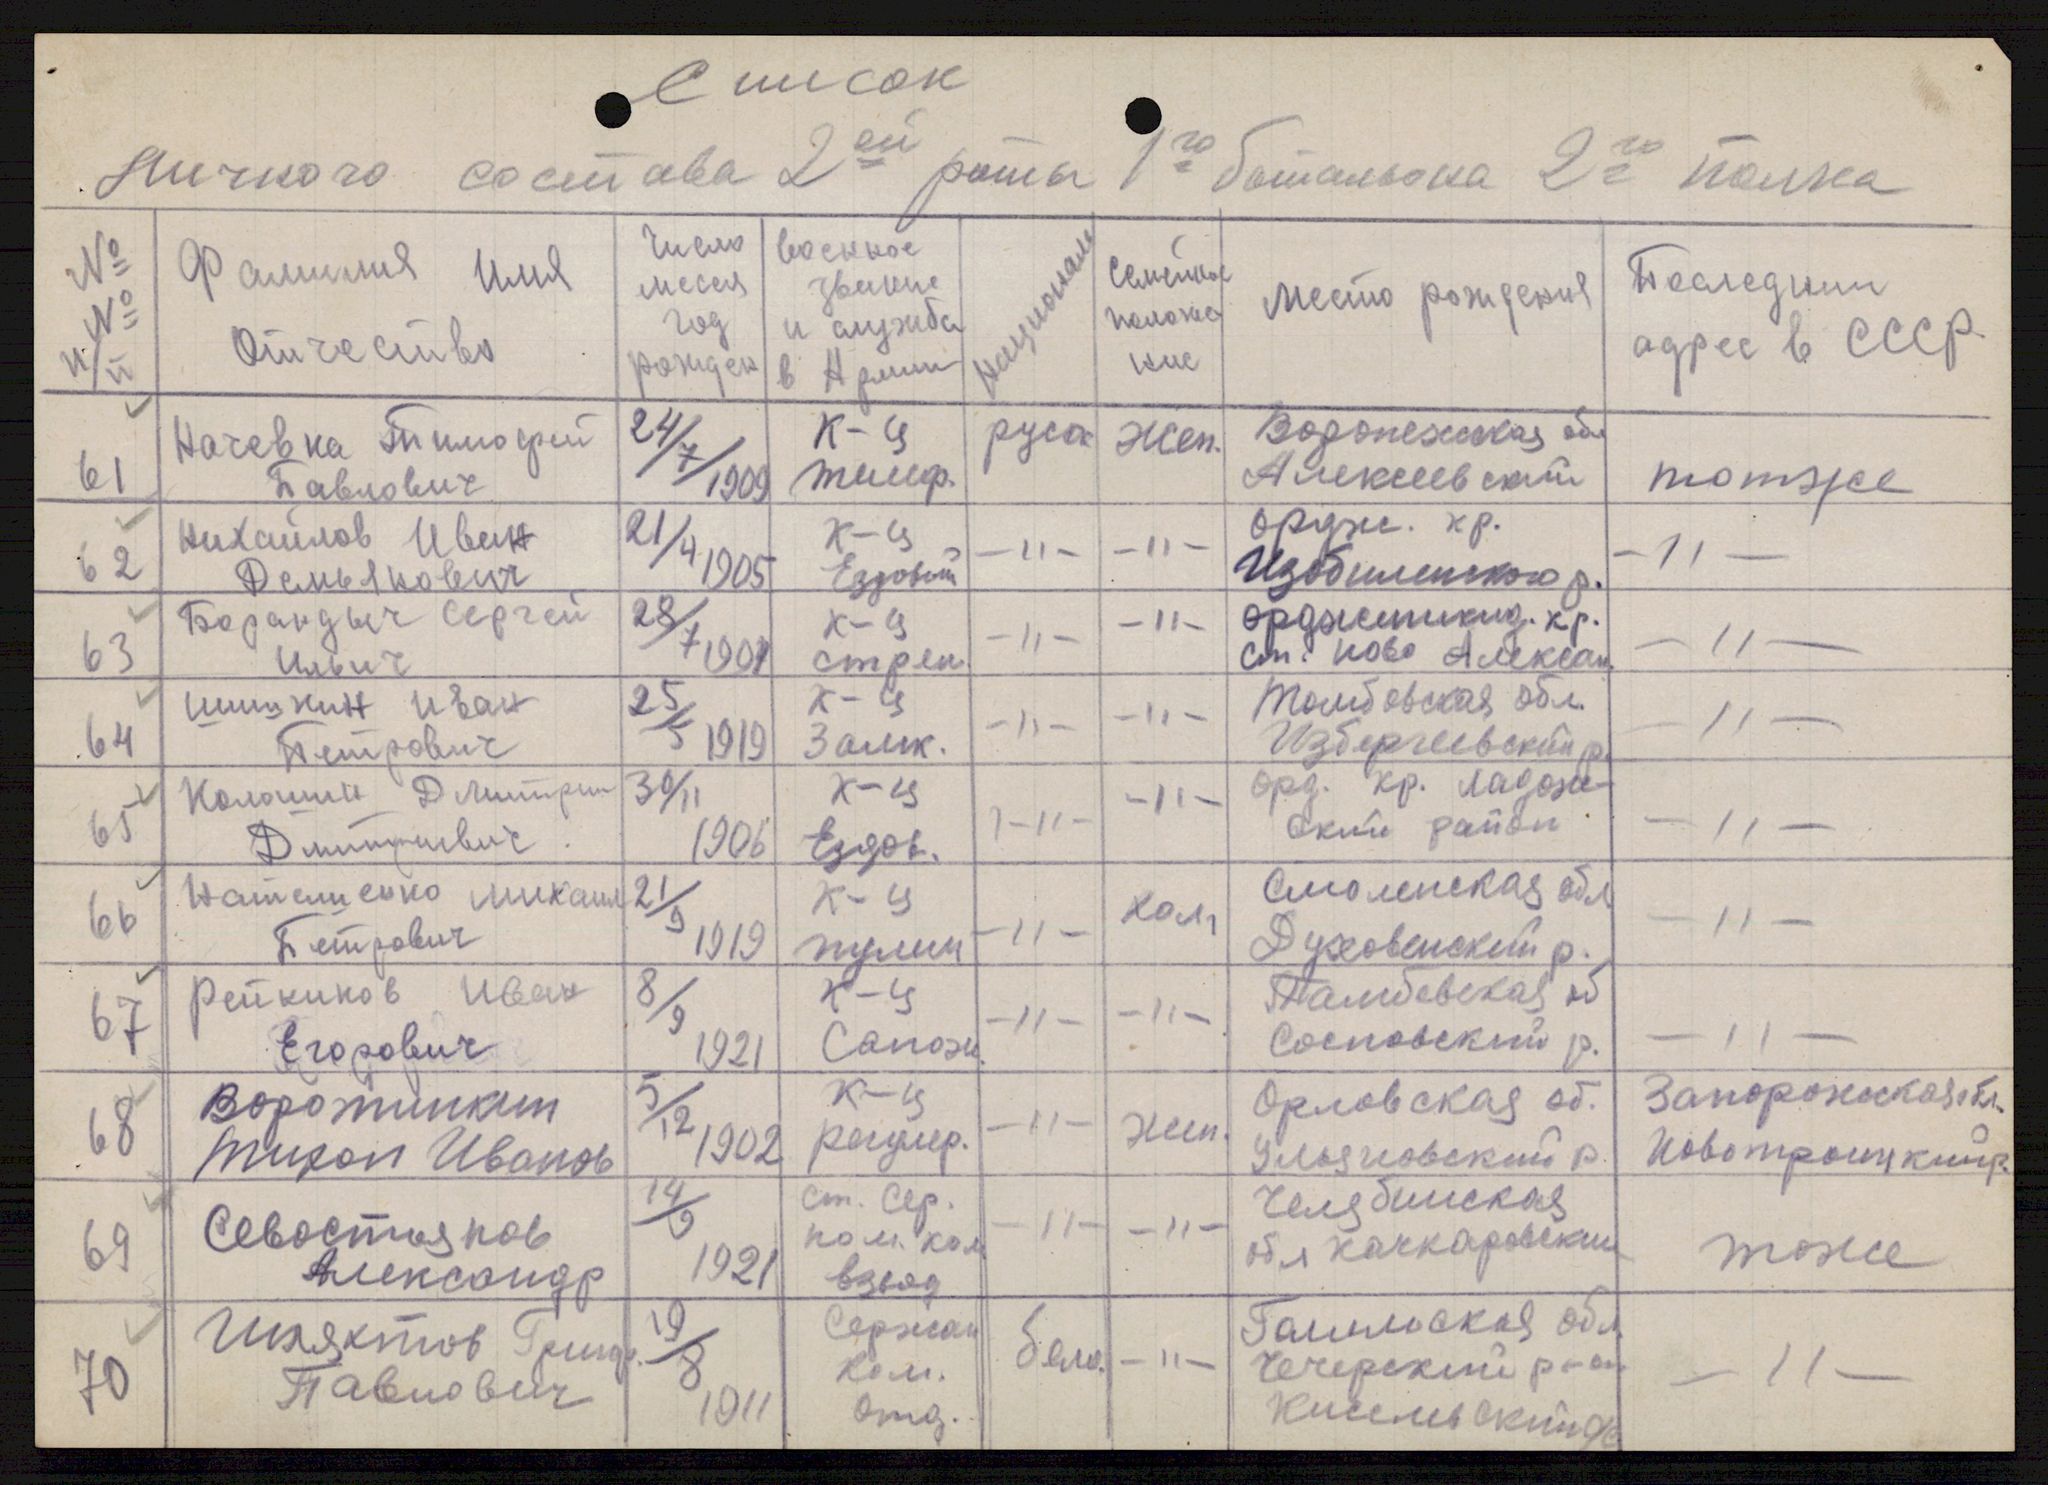 Список
Личного состава 2ей роты 1го батальона 2го полка
№ № п/п
Фамилия Имя Отчество
Число месец год рожден
Военное звание и служба в Армии
Националь
Семейное положе ние
Место рождения
Последнии адрес в СССР
61 Начевка Тимофей Павлович 24/7/1909 К-ц телеф. руск Жен. Воронежская обл Алексеевский тотже
62 Михайлов Иван Демьянович 21/4 1905 К-ц Ездовой -"- -"- Ордж. кр. Изобиленского р. -"-
63 Барандыч Сергей Ильич 28/7 1901 К-ц стрел. -"- -"- Орджоникид. кр. ст. Ново Алексан -"-
64 Шишкин Иван Петрович 25/5 1919 К-ц Замк. -"- -"- Томбовская обл. Избердеевский р. -"-
65 Колошин Дмитрий Дмитриевич 30/11 1906 К-ц Ездов. -"- -"- Орд. кр. Ладож- ский район -"-
66 Михаил Петрович 21/9 1919 К-ц пулем -"- Хол. Смоленская обл Духовенский р. -"-
67 Репкинов Иван Егорович 8/9 1921 К-ц Сапож. -"- -"- Тамбовская об Сосновский р. -"-
68 Воротинкин Тихон Иванов 5/12 1902 К-ц регулер. -"- жен. Орловская об. Ульяновский р. Запорожская обл. Новотроицкий р.
69 Севостьянов Александр 14/9 1921 ст. Сер. пом. ком взвод -"- -"- Челябинская обл Качкаровский тоже
70 Шляхтов Григор. Павлович 19/8 1911 Сержан Ком. Отд. бело. -"- Гомельская обл Чечерский р-он Кисельский с/с -"-